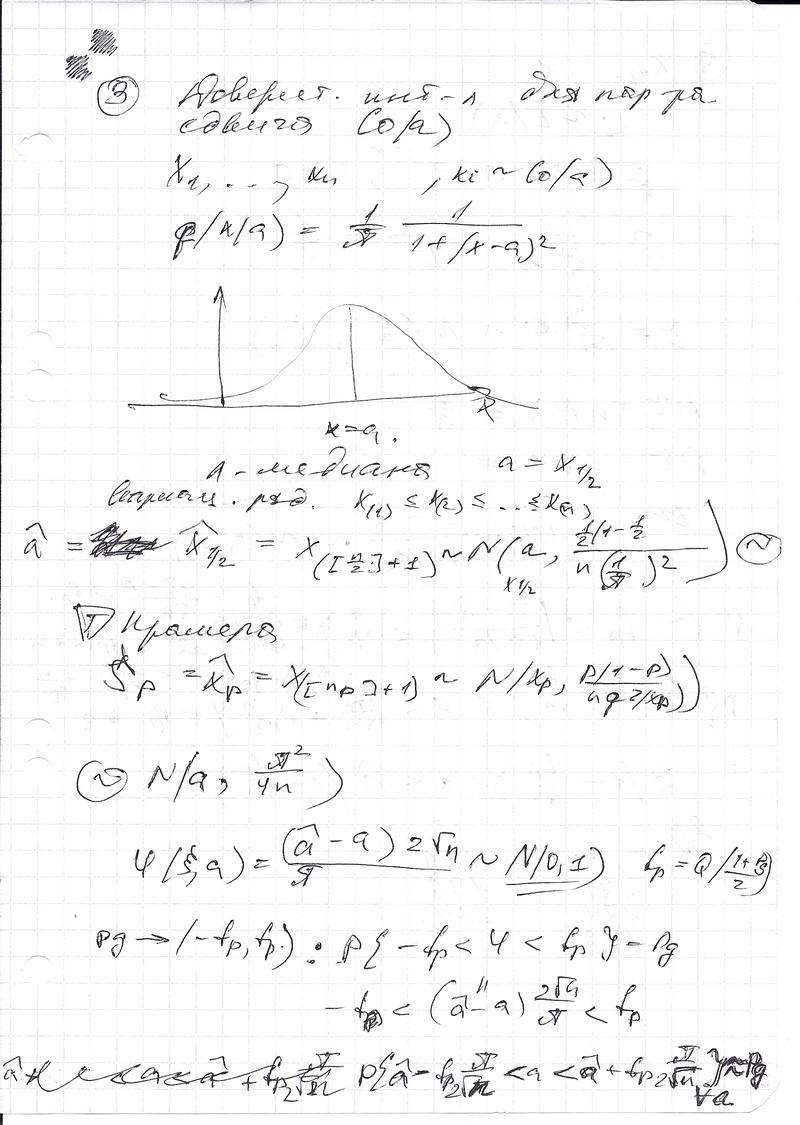 ③ Доверит. инт-л для пар-ра
сдвига Co(a)
X₁, ..., xₙ , xᵢ ~ Co(a)
q(x|a) = 1/π 1/(1+(x-a)²)
x=a.
a - медиана a = x_{1/2}
Вариац. ряд. X_{(1)} ≤ X_{(2)} ≤ ... ≤ X_{(n)}
â = x̂_{1/2} = X_{([n/2]+1)} ~ N(a, ½(1-½)/(n(1/π)²)) ~
x_{1/2}
T Крамера
ζ*_p = x̂_p = X_{([np]+1)} ~ N(x_p, p(1-p)/(n q²(x_p)))
~ N(a, π²/4n)
φ(ξ,a) = (â - a) 2√n/π ~ N(0,1) f_p = Q((1+Pg)/2)
Pg → (-f_p, f_p): P{-f_p < φ < f_p} = Pg
-f_p < (â - a) 2√n/π < f_p
P{â - f_p π/2√n < a < â + f_p π/2√n} ≈ Pg
∀a